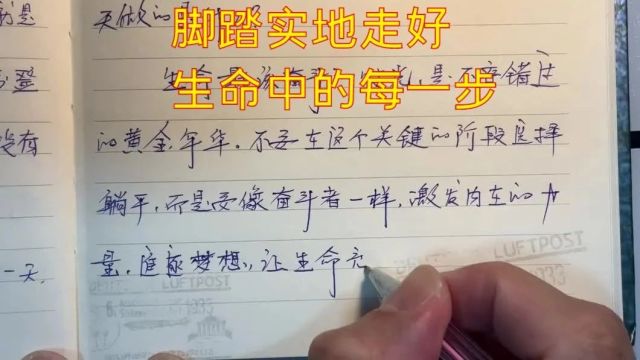 天做的
脚踏实地走好
生命中的每一步
是不容错过
的黄金年华。不要在这个关键的阶段选择
躺平,而是要像奋斗者一样,激发内在的力
量,追逐梦想,让生命充
没有
一天
LUFTPOST
LUFTPOST
1933